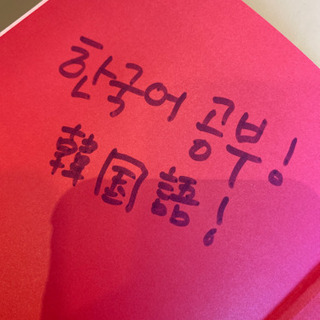 한국어 공부!
韓国語!